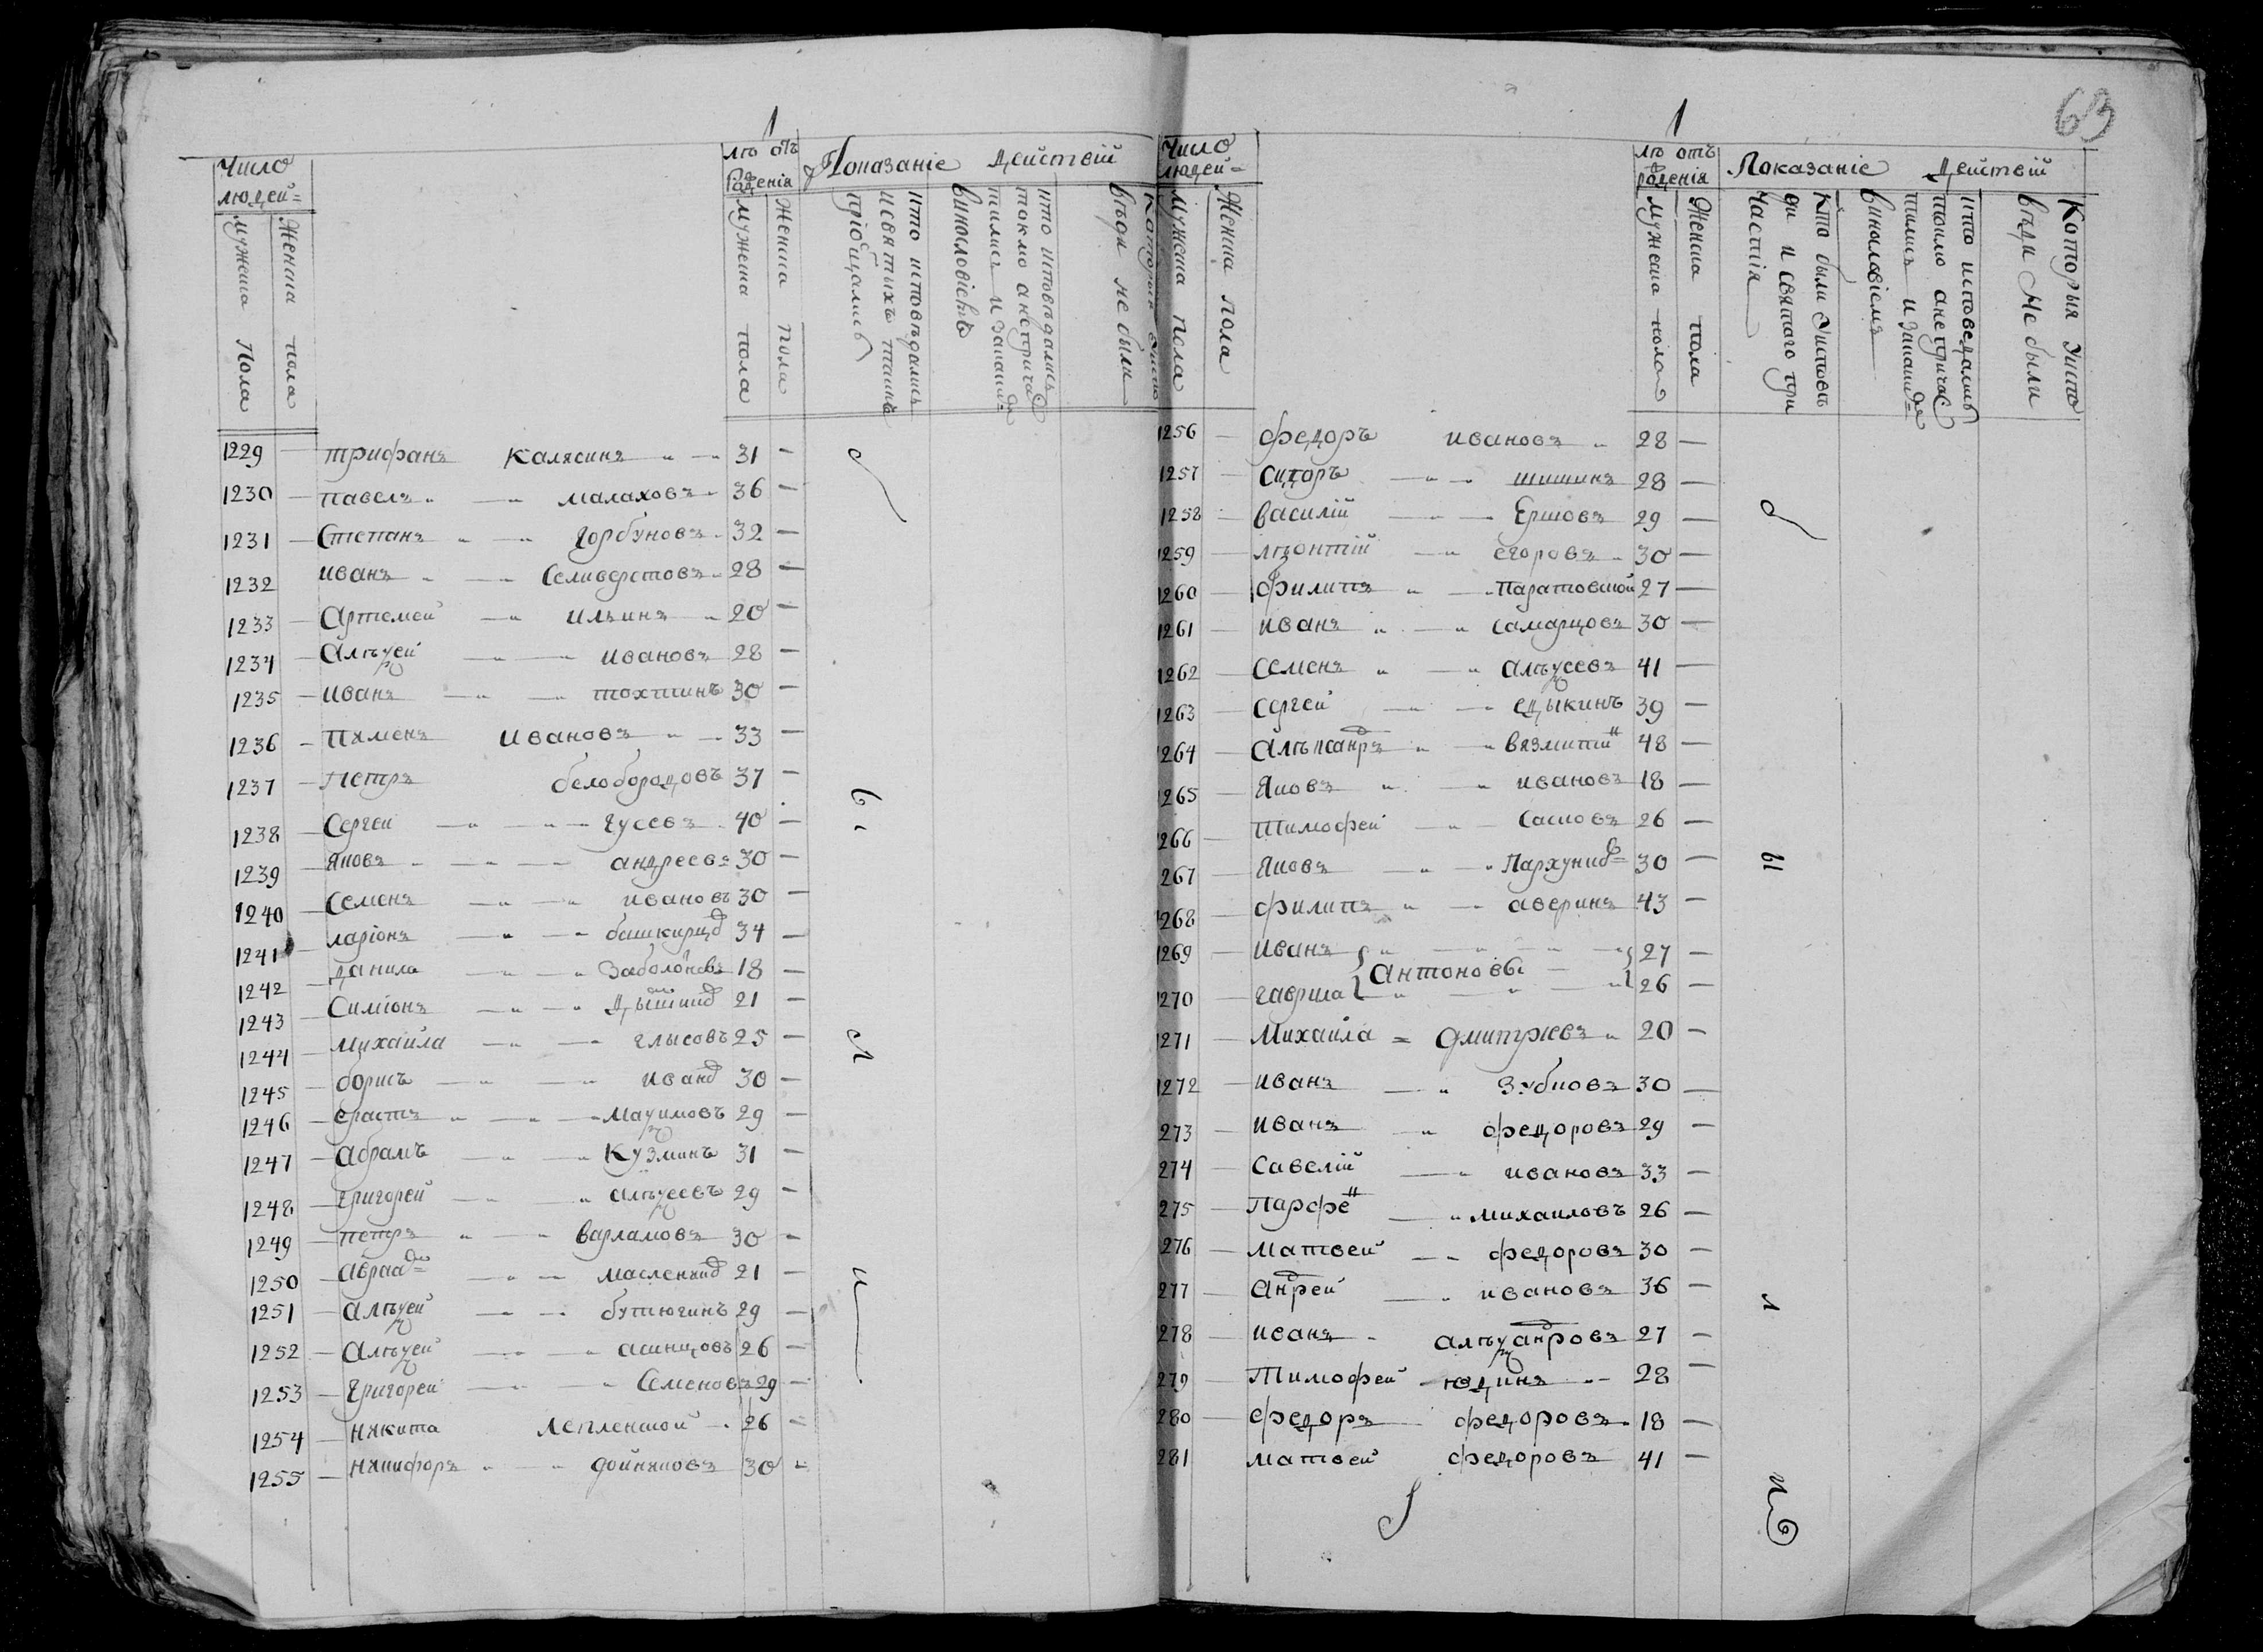 1
Число людей=
мужеска пола
Женска пола
лѣ отъ рожденія
мужеска пола
Женска пола
Показаніе Действій
кто исповѣдались и святыхъ таинъ пріобщались
кто исповѣдались токмо а не прича
Которыя
не были
1229 — трифанъ Калясинъ 31 —
1230 — павелъ малаховъ 36 —
1231 — Степанъ Горбуновъ 32 —
1232 иванъ Селиверстовъ 28 —
1233 — Артемей ильинъ 20 —
1234 — Алѣѯей ивановъ 28 —
1235 — иванъ тохтинъ 30 —
1236 — Пяменъ ивановъ 33 —
1237 — Петръ белобородовъ 37 —
1238 — Сергей гусевъ 40 —
1239 — яковъ андреевъ 30 —
1240 — Семенъ ивановъ 30 —
1241 — ларіонъ башкирц 34 —
1242 — данила Заболоновъ 18 —
1243 — Симіонъ 21 —
1244 — михаила глысовъ 25 —
1245 — борисъ иван 30 —
1246 — ерастъ маѯимовъ 29 —
1247 — абрамъ Кузминъ 31 —
1248 — григорей алѣѯеевъ 29 —
1249 — петръ варламовъ 30 —
1250 — авраа масленик 21 —
1251 — алѣѯей бутюгинъ 29 —
1252 — алѣѯей асинцовъ 26 —
1253 — григорей Семеновъ 29 —
1254 — някита Лепленской 26 —
1255 — някифоръ дойняковъ 30 —
б.
ы
л
и
63
1
Число людей=
мужеска пола
Женска пола
лѣ отъ рожденія
мужеска пола
Женска пола
Показаніе Действій
Кто были Уисповѣ ди и святаго при частія
кто исповедались токмо а не причас тились и закаким де винословіемъ
Которыя Уиспо вѣди Не были
1256 — федоръ ивановъ 28 —
1257 — Сидоръ шишинъ 28 —
1258 — василій Ершовъ 29 —
1259 — леонтій егоровъ 30 —
1260 — филипъ Паратовской 27 —
1261 — иванъ самарцовъ 30 —
1262 — семенъ алѣѯеевъ 41 —
1263 сергей едыкинъ 39 —
1264 — алѣксандръ вязмити 48 —
1265 — Яковъ ивановъ 18 —
1266 — Тимофей Сасновъ 26 —
1267 — Яковъ Пархунив 30 —
1268 — филипъ аверинъ 43 —
1269 — иванъ 27 —
антоновы
1270 — гаврила 26 —
1271 — михаила = дмитріевъ 20 —
1272 — иванъ Зубковъ 30 —
273 — иванъ федоровъ 29 —
274 — савелій ивановъ 33 —
275 — Парфе михаиловъ 26 —
276 — матвей федоровъ 30 —
277 — андрей ивановъ 36 —
278 — иванъ алѣѯандровъ 27 —
279 — Тимофей юдинъ 28 —
280 — федоръ федоровъ 18 —
281 матвей федоровъ 41 —
б
ы
л
и